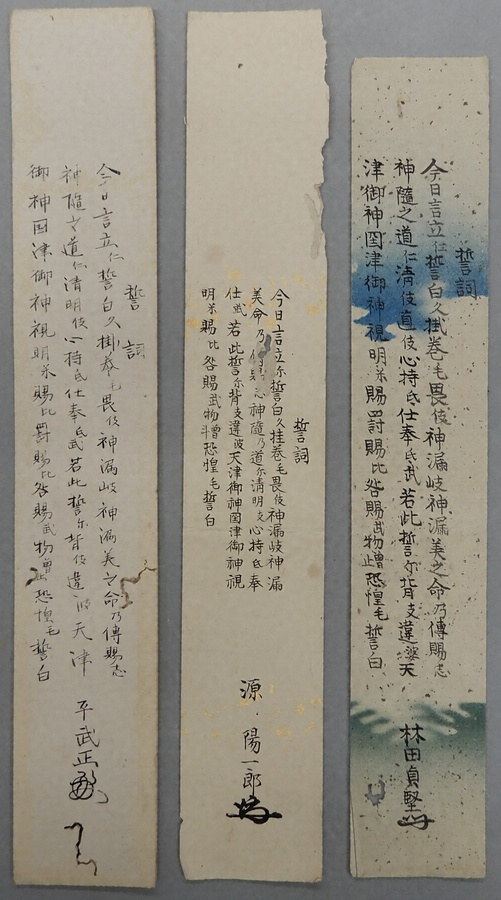 誓詞
今日言立仁誓白久掛巻毛畏伎神漏岐神漏美之命乃傳賜志
神隨之道仁清直伎心持氐仕奉氐武若此誓尓背支違婆天
津御神国津御神視明米賜罸賜比咎賜武物曽恐惶毛誓白
林田貞堅
誓詞
今日言立尓誓白久挂巻毛畏伎神漏岐神漏
美命乃傳賜志神隨乃道尓清明支心持氐奉
仕武若此誓尓背支違波天津御神国津御神視
明米賜比咎賜武物曽恐惶毛誓白
源陽一郎
誓詞
今日言立仁誓白久掛巻毛畏伎神漏岐神漏美之命乃傳賜志
神隨之道仁清明伎心持氐仕奉氐武若此誓尓背伎違波天津
御神国津御神視明米賜比罸賜比咎賜武物曽恐惶毛誓白
平武正